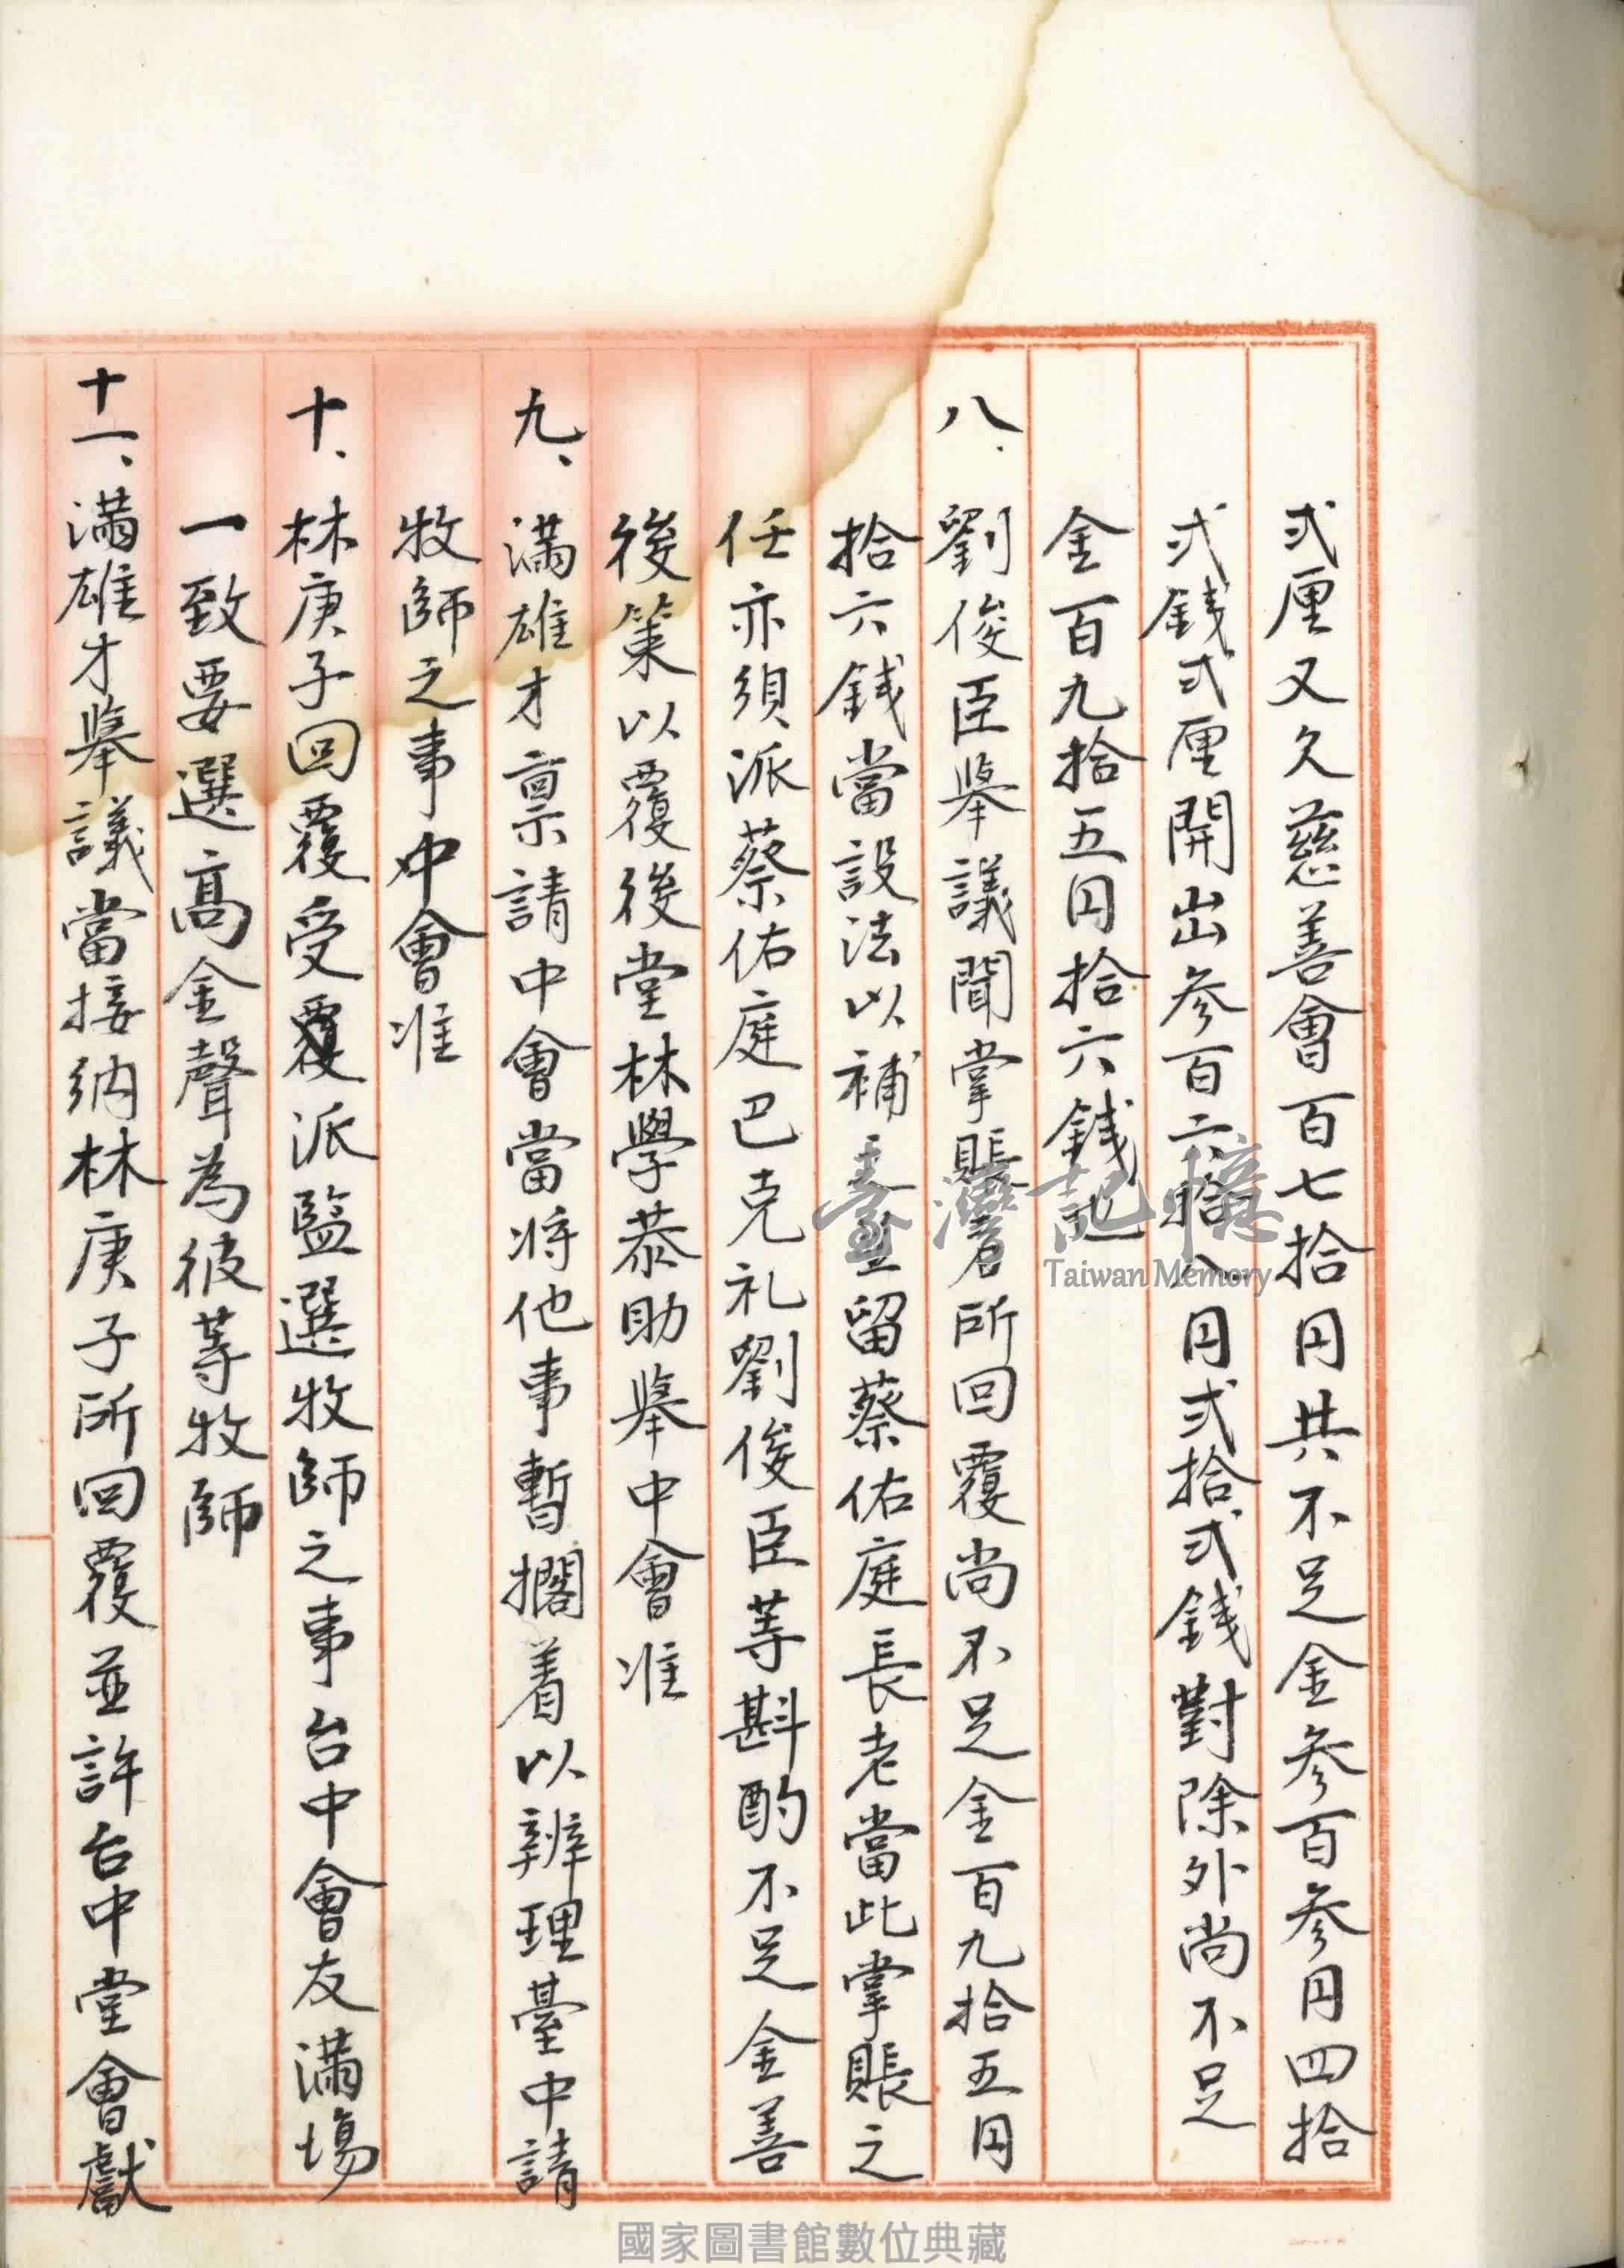 弍厘又欠慈善會百七拾円共不足金參百參円四拾
弍錢弍厘開出參百六拾八円弍拾弍錢對除外尚不足
金百九拾五円拾六錢也
八、劉俊臣舉議聞掌賬者所回覆尚不足金百九拾五円
拾六錢當設法以補並留蔡佑庭長老當此掌賬之
任亦須派蔡佑庭巴克礼劉俊臣等斟酌不足金善
後策以覆後堂林學恭助舉中會准
九、滿雄才禀請中會當將他事暫擱着以辨理臺中請
牧師之事中會准
十、林庚子回覆受覆派監選牧師之事台中會友滿場
一致要選高金聲為彼等牧師
十一、滿雄才舉議當接納林庚子所回覆並許台中堂會獻
臺灣記憶
Taiwan Memory
國家圖書館數位典藏